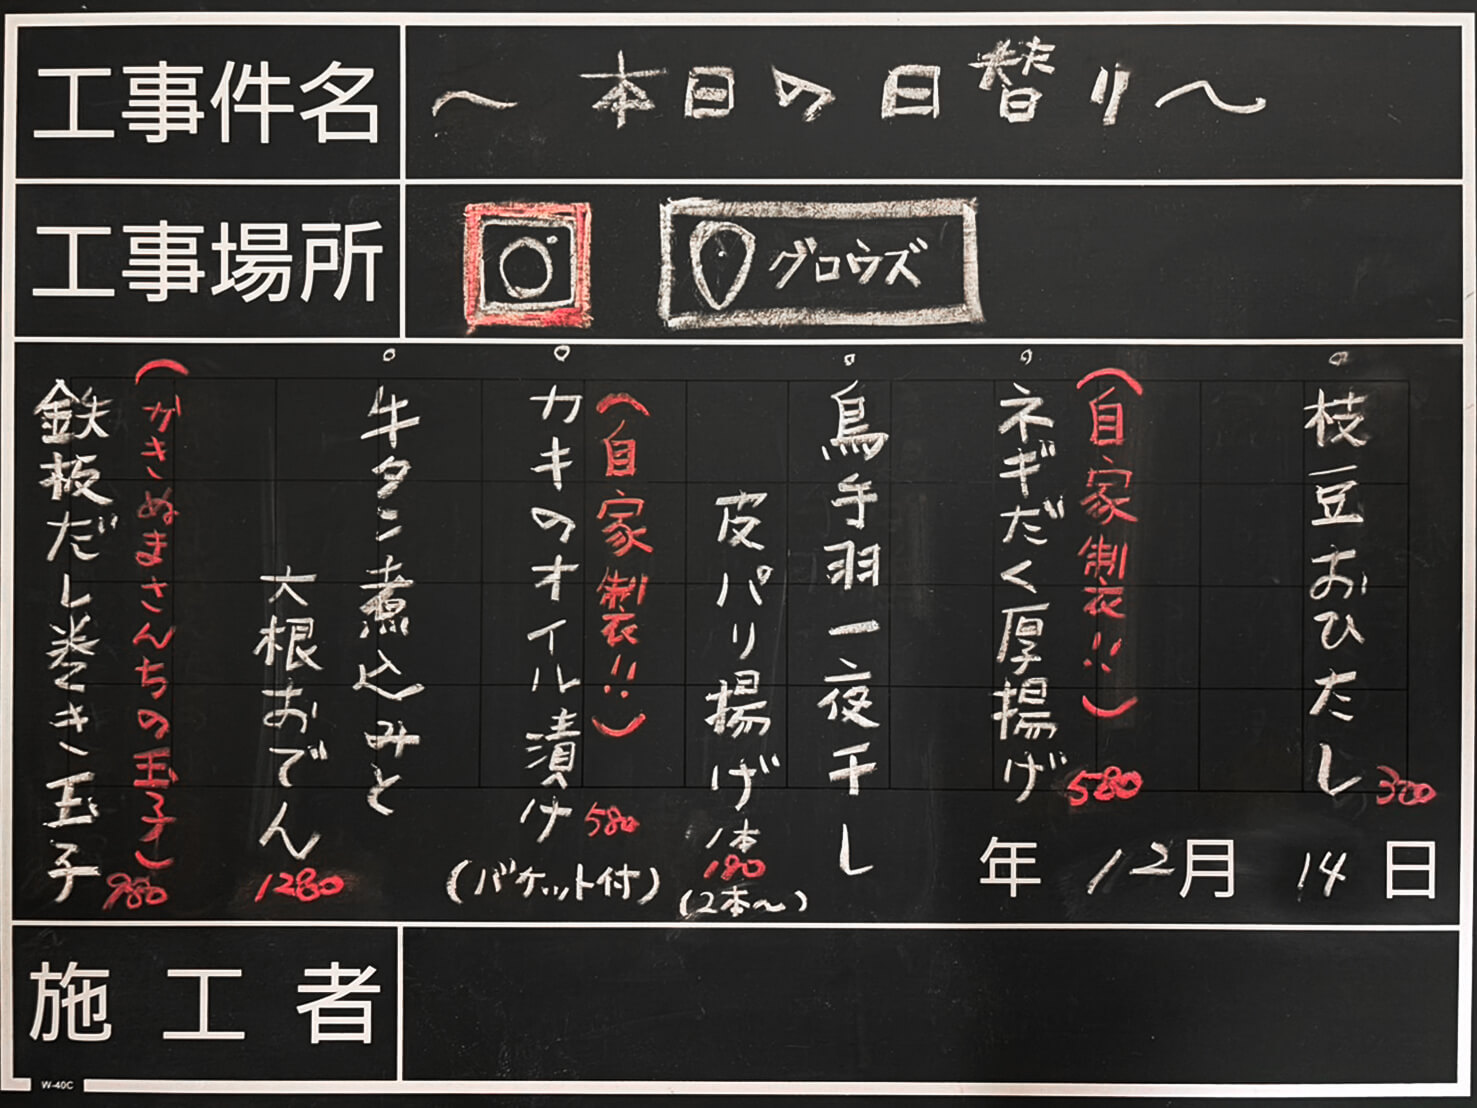 工事件名
～本日の日替り～
工事場所
グロウズ
枝豆おひたし
300
(自家製!!)
ネギだく厚揚げ
580
鳥手羽一夜干し
皮パリ揚げ 1本
180
(2本～)
(自家製!!)
カキのオイル漬け
580
(バケット付)
牛タン煮込みと
大根おでん
1280
(かきぬまさんちの玉子)
鉄板だし巻き玉子
980
年 12月 14日
施工者
W-40C